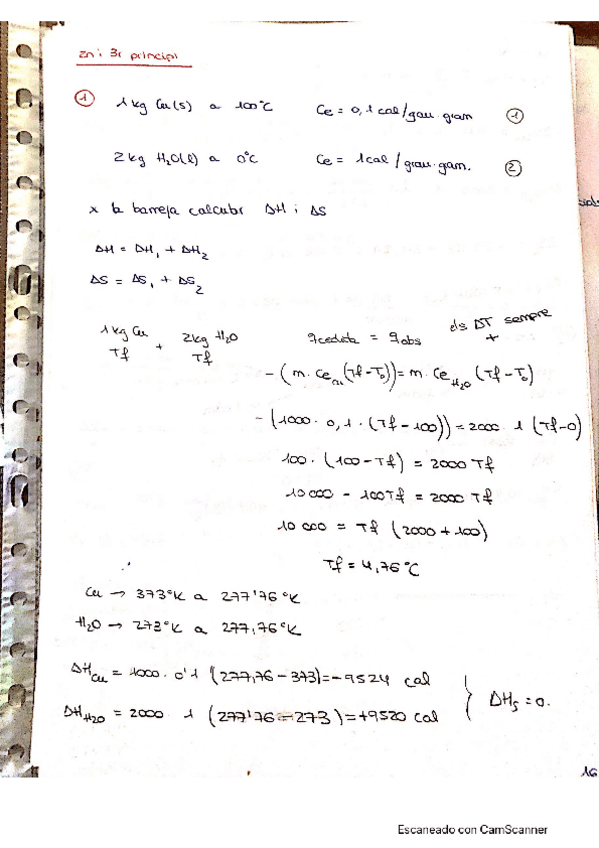 2n i 3r principi
① 1 kg Cu(s) a 100°C Ce = 0,1 cal/grau·gram ①
2 kg H2O(l) a 0°C Ce = 1cal / grau·gam. ②
x la barreja calcular ΔH i ΔS
ΔH = ΔH1 + ΔH2
ΔS = ΔS1 + ΔS2
1 kg Cu Tf + 2kg H2O Tf qcedida = qabs els ΔT sempre +
-(m·Ce Cu (Tf-To)) = m·Ce H2O (Tf-To)
-(1000·0,1·(Tf-100)) = 2000·1 (Tf-0)
100·(100-Tf) = 2000 Tf
10000 - 100Tf = 2000 Tf
10000 = Tf (2000+100)
Tf = 4,76°C
Cu → 373°K a 277'76°K
H2O → 273°K a 277,76°K
ΔHCu = 1000·0'1 (277,76-373)=-9524 cal
ΔHH2O = 2000·1 (277'76-273)=+9520 cal } ΔHs = 0.
16
Escaneado con CamScanner